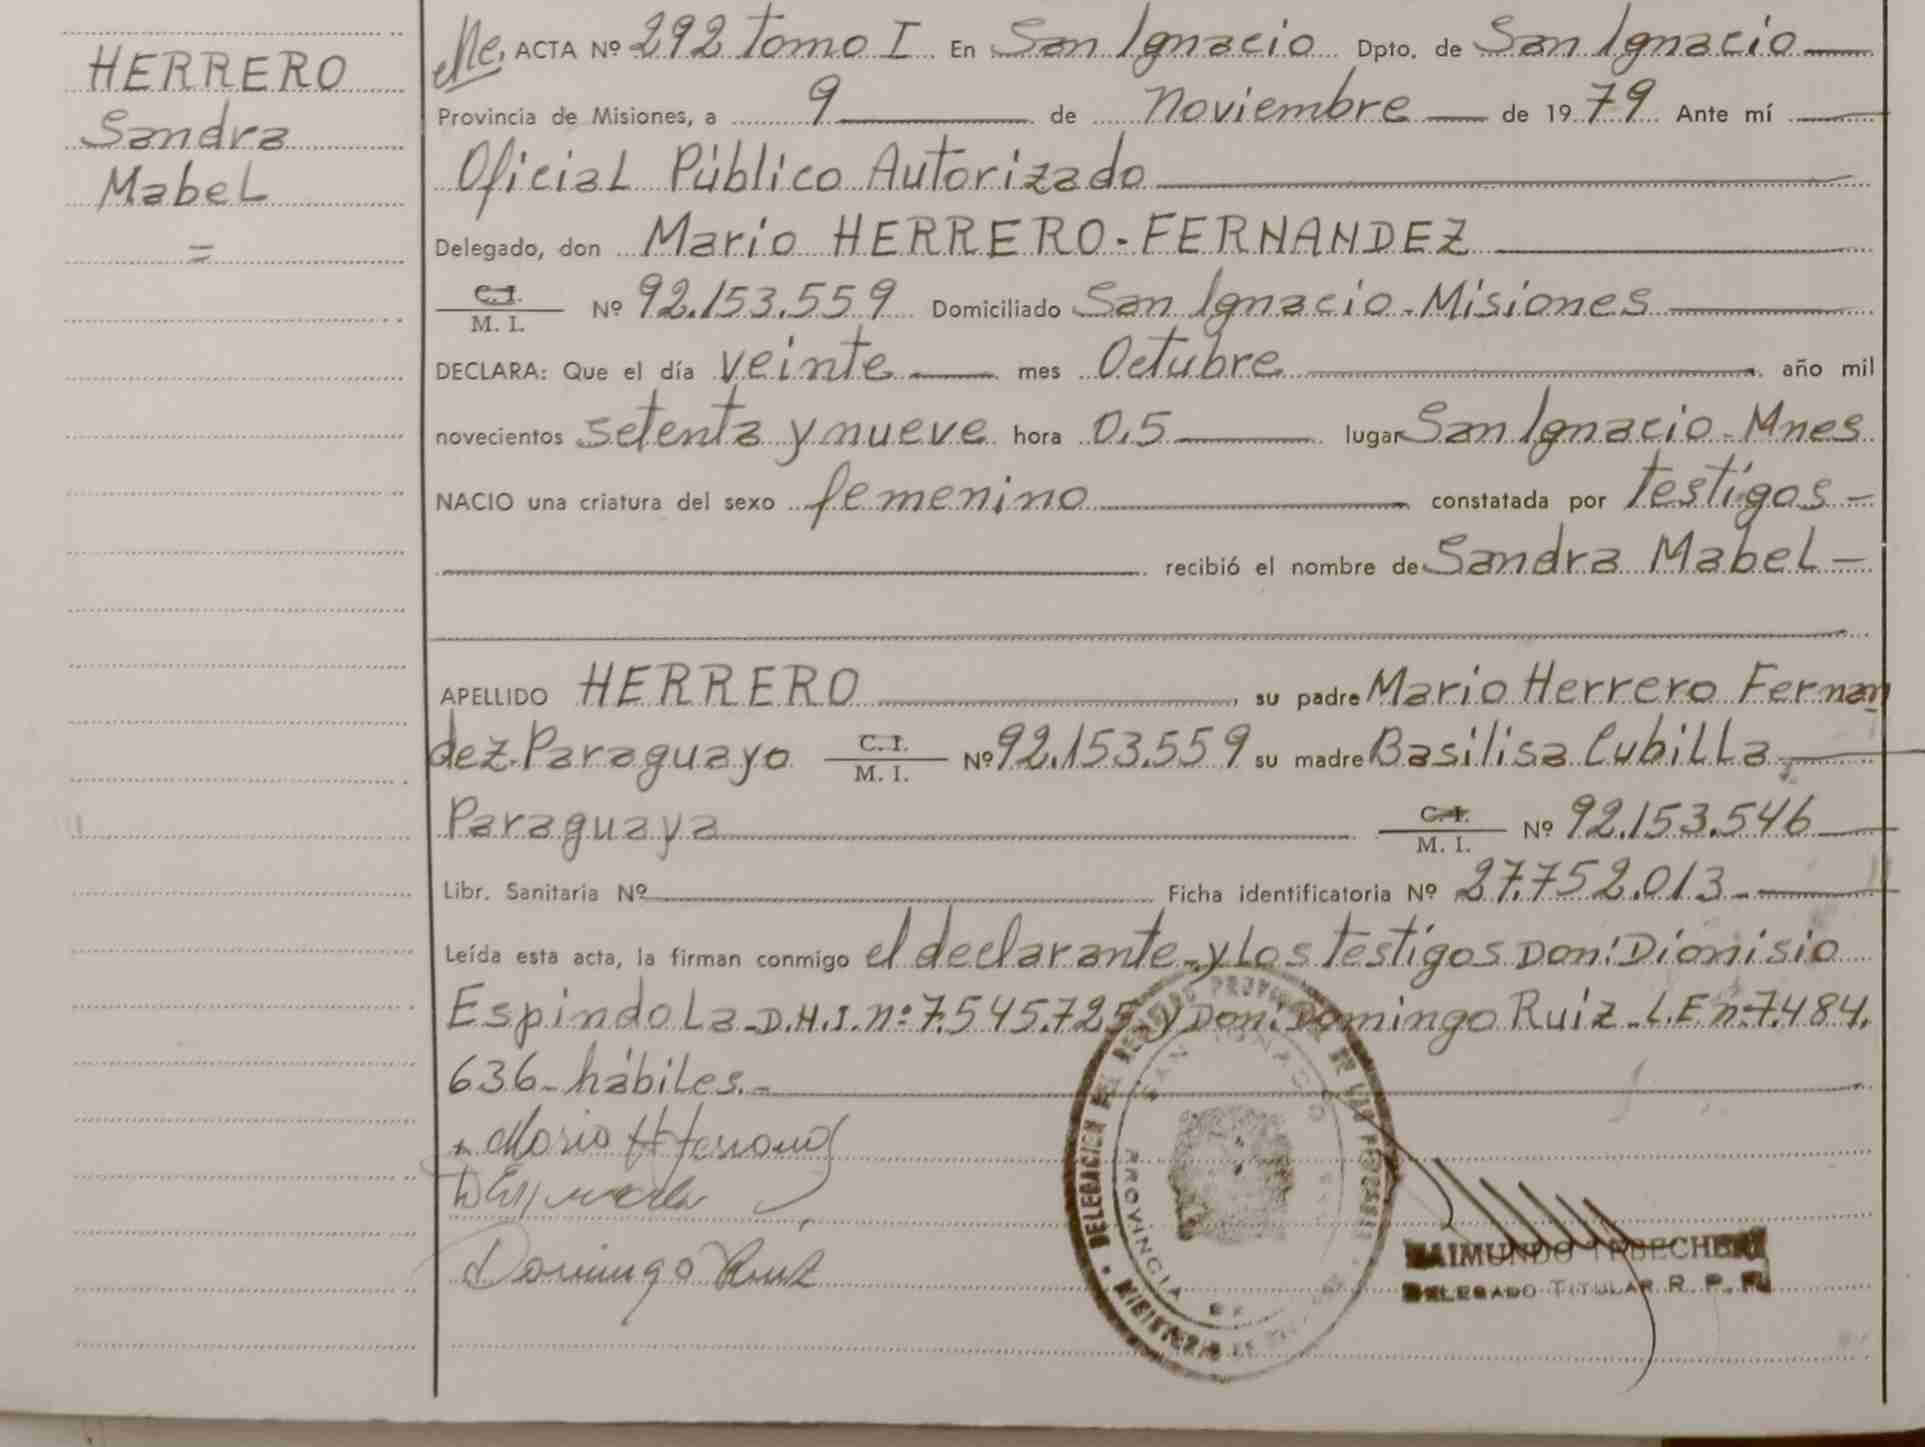 HERRERO
Sandra
Mabel
=
ACTA Nº 292 tomo I En San Ignacio Dpto. de San Ignacio
Provincia de Misiones, a 9 de Noviembre de 1979 Ante mí
Oficial Público Autorizado
Delegado, don Mario HERRERO-FERNANDEZ
C.I.
M. I. Nº 92.153.559 Domiciliado San Ignacio-Misiones
DECLARA: Que el día veinte mes Octubre año mil
novecientos setenta y nueve hora 0.5 lugar San Ignacio-Mnes
NACIO una criatura del sexo femenino constatada por testigos-
recibió el nombre de Sandra Mabel-
APELLIDO HERRERO, su padre Mario Herrero Fernan
dez.Paraguayo C. I. / M. I. Nº 92.153.559 su madre Basilisa Cubilla
Paraguaya C. I. / M. I. Nº 92.153.546
Libr. Sanitaria Nº Ficha identificatoria Nº 27.752.013-
Leída esta acta, la firman conmigo el declarante y los testigos Don: Dionisio
Espindola-D.N.I.nº:7.545.725-y Don: Domingo Ruiz-L.E nº7.484.
636-hábiles.-
Domingo Ruiz
DELEGACION
SAN IGNACIO
PROVINCIA DE
MINISTERIO DE
RAIMUNDO
DELEGADO TITULAR R. P. P.